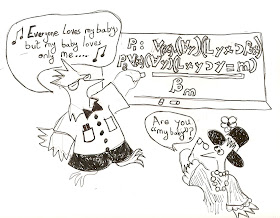 ♫ Everyone loves my baby,
but my baby loves
only me.... ♫
P₁:
(∀y)(Lxy⊃y=m)
m
Are you
"my baby"?